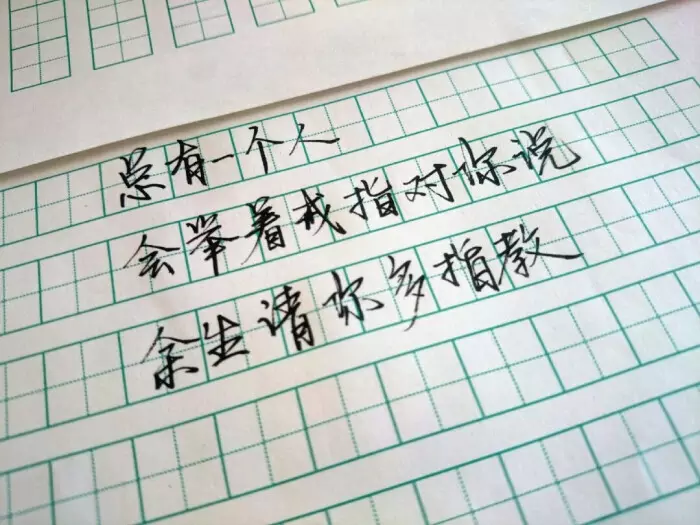 总有一个人
会举着戒指对你说
余生请你多指教